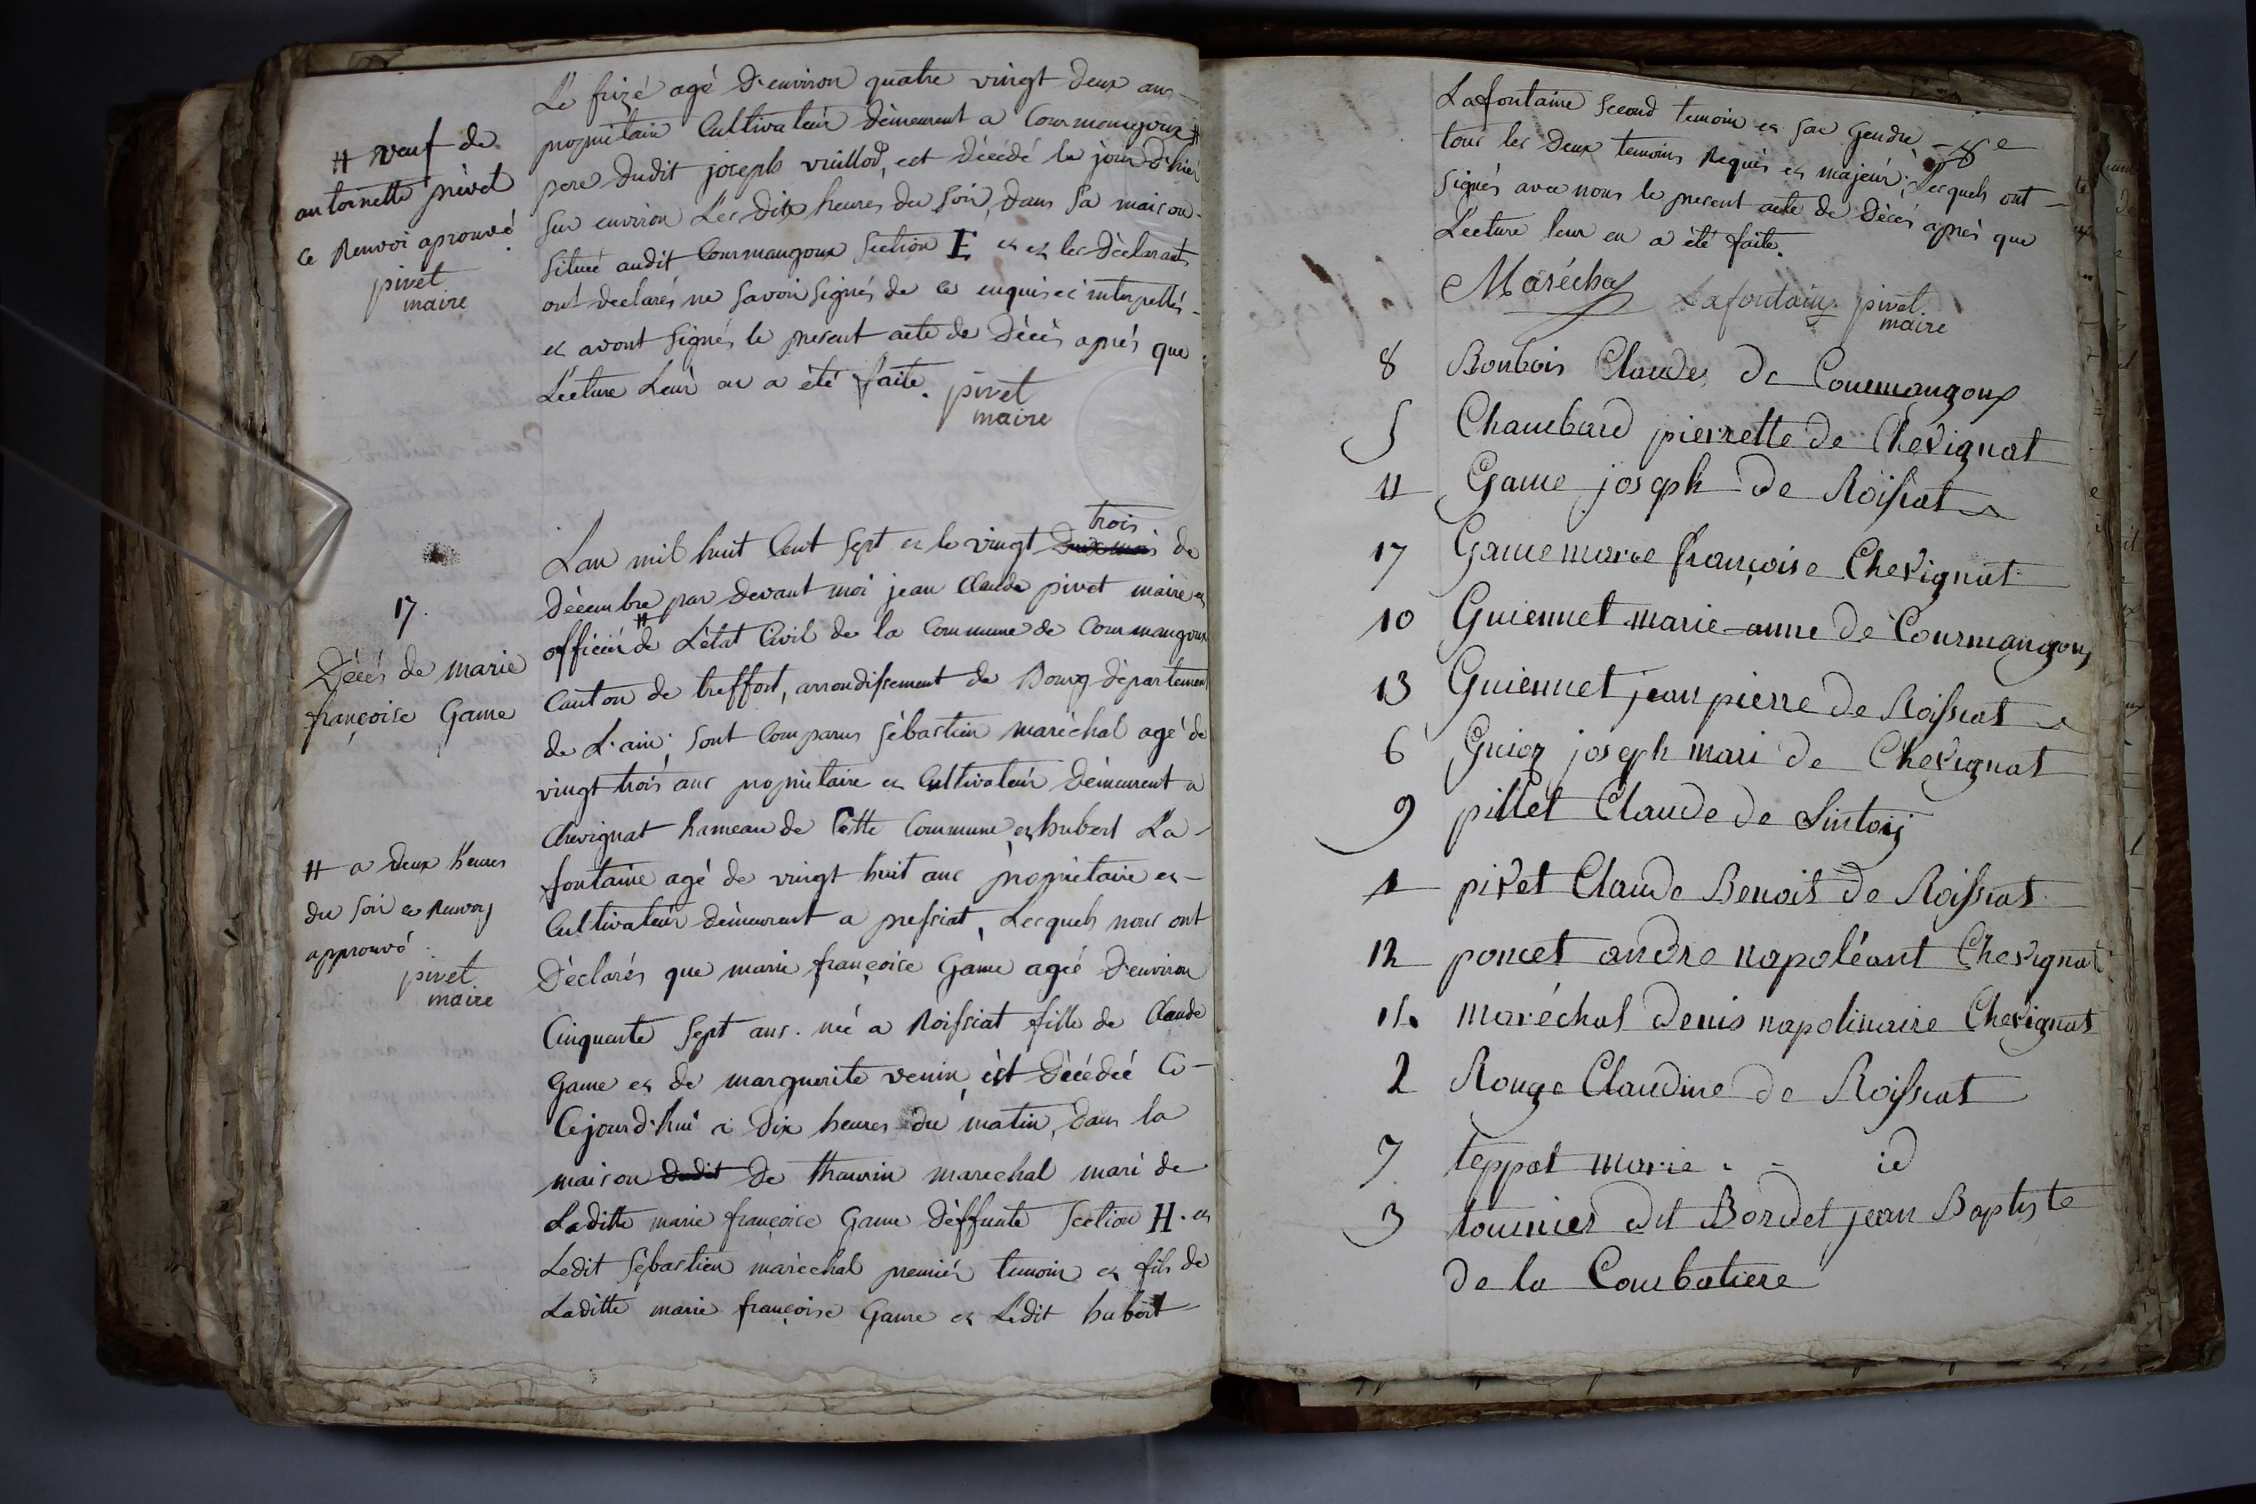 Le frizé agé d'environ quatre vingt deux ans
propriétaire Cultivateur demeurent a Courmangoux #
pere dudit joseph vuillod, est décédé le jour d'hier
sur environ Les dix heures du soir, dans sa maison
située audit Courmangoux Section E et et les déclarants
ont declarés ne savoir signés de ce enquis et interpellés
et avont signés le present acte de décès après que
Lecture Leur en a été faite. pivet
maire
# veuf de
antoinette pivet
ce Renvoi aprouvé
pivet
maire
17.
Décés de marie
françoise Game
trois
L'an mil huit Cent Sept et le vingt deux mois de
décembre # par devant moi jean Claude pivet maire et
officier de L'état Civil de la Commune de Courmangoux
Canton de treffort, arrondissement de Bourg département
de L'ain, sont Comparus Sébastien maréchal agé de
vingt trois ans propriétaire et Cultivateur demeurent a
Chevignat hameau de Cette Commune et hubert La-
fontaine agé de vingt huit ans propriétaire et
Cultivateur demeurent a pressiat, Lesquels nous ont
Déclarés que marie françoise Game agée d'environ
Cinquante Sept ans. née a Roissiat fille de Claude
Game et de marguerite venin, est décédée Ce
Cejourd'hui a dix heures du matin, dans la
maison dudit de marechal mari de
Laditte marie françoise Game deffunte Section H. et
Ledit Sébastien maréchal premier temoin et fils de
Laditte marie françoise Game et Ledit hubert
# a deux heures
du soir et Renvoy
approuvé
pivet
maire
Lafontaine second temoin et son Gendre
tous les deux temoins Requis et majeur, Lesquels ont
signés avec nous le present acte de décés après que
Lecture leur en a été faite.
Maréchal Lafontaine pivet
maire
8 Bonbois Claude de Courmangoux
5 Chambard pierrette de Chevignat
11 Game joseph de Roissiat
17 Game marie françoise Chevignat
10 Guiennet marie anne de Courmangoux
13 Guiennet jean pierre de Roissiat
6 Guion joseph mari de Chevignat
9 pillet Claude de
1 pivet Claude Benoit de Roissiat
12 poncet andre napoléant Chevignat
maréchal denis napolinaire Chevignat
2 Rouge Claudine de Roissiat
7 teppat marie . - id
3 tournier dit Bordet jean Baptiste
de la Courbatiere